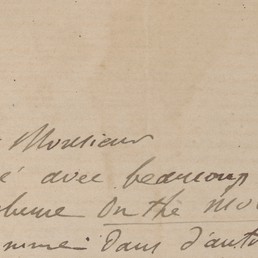 Monsieur
é avec beaucoup
lume On the Mo
omme dans d'aut